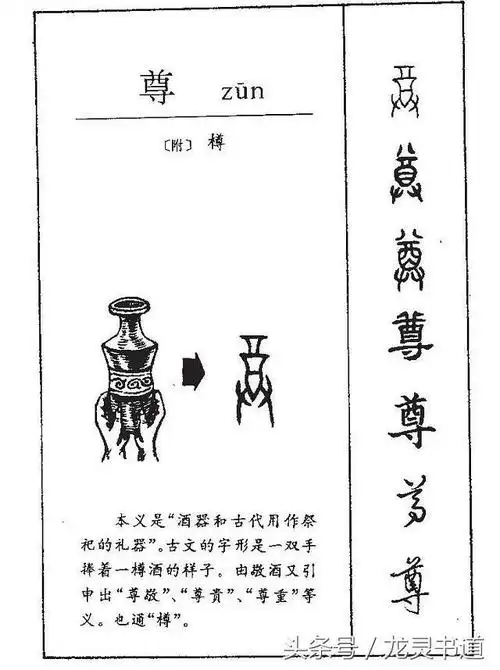 尊 zūn
〔附〕 樽
本义是“酒器和古代用作祭
祀的礼器”。古文的字形是一双手
捧着一樽酒的样子。由敬酒又引
申出“尊敬”、“尊贵”、“尊重”等
义。也通“樽”。
尊
尊
尊
尊
尊
尊
尊
头条号／龙灵书道